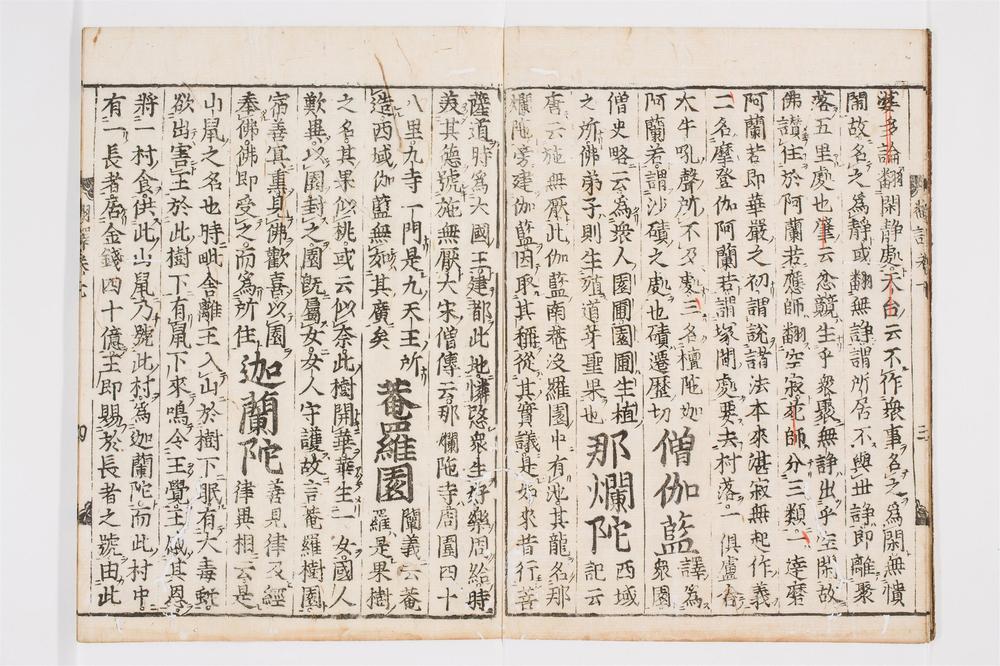 婆多論翻閑靜處天台云不作衆事名之爲閑無憒
閙故名之爲靜或翻無諍謂所居不與世諍即離聚
落五里處也肇云忿競生乎衆聚無諍出乎空閑故
佛讃住於阿蘭若應師翻空寂苑師分三類一達磨
阿蘭若即華嚴之初謂說諸法本來湛寂無起作義
二名摩登伽阿蘭若謂塚間處要去村落一俱盧舍
大牛吼聲所不及處三名檀陀伽
阿蘭若謂沙磧之處也磧遷歷切
僧伽藍
譯爲
衆園
僧史略云爲衆人園圃園圃生植
之所佛弟子則生殖道芽聖果也
那爛陀
西域
記云
唐云施無厭此伽藍南菴沒羅園中有池其龍名那
爛陁旁建伽藍因取其稱從其實議是如來昔行菩
薩道時爲大國王建都此地憐愍衆生好樂周給時
美其德號施無厭大宋僧傳云那爛陁寺周圍四十
八里九寺一門是九天王所
造西域伽藍無如其廣矣
菴羅園
闡義云菴
羅是果樹
之名其果似桃或云似柰此樹開華華生一女國人
歎異以園封之園旣屬女女人守護故言菴羅樹園
宿善冥熏見佛歡喜以園
奉佛佛即受之而爲所住
迦蘭陀
善見律及經
律異相云是
山鼠之名也時毗舍離王入山於樹下眠有大毒虵
欲出害王於此樹下有鼠下來鳴令王覺王感其恩
將一村食供此山鼠乃號此村爲迦蘭陀而此村中
有一長者居金錢四十億王即賜於長者之號由此